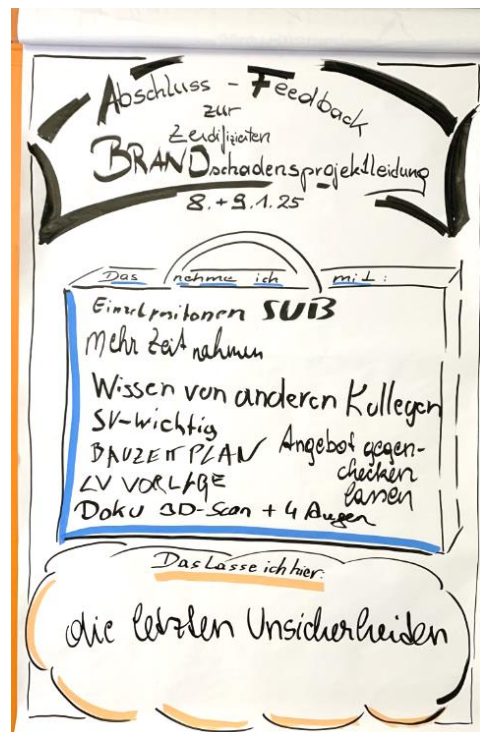 Abschluss - Feedback
zur
Zerdifizierten
BRANDschadensprojektleidung
8. + 9.1.25
Das nehme ich mit:
Einzelpositonen SUB
Mehr Zeit nahmen
Wissen von anderen Kollegen
SV-Wichtig
BAUZEITPLAN
LV VORLAGE
Angebot gegen-
checken
lassen
Doku 3D-Scan + 4 Augen
Das Lasse ich hier:
die letzten Unsicherheiden